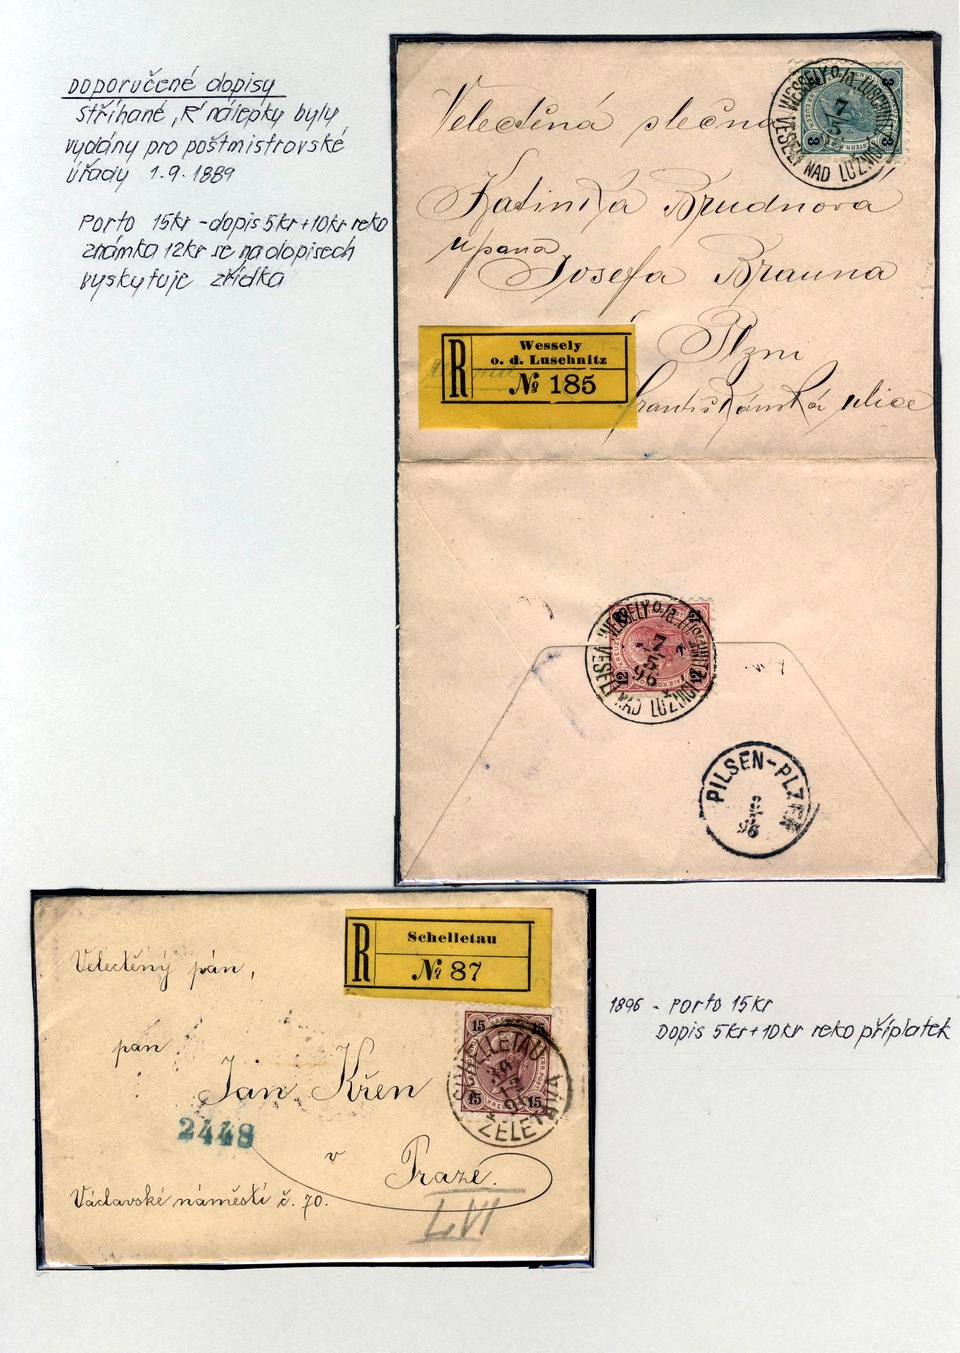 Doporučené dopisy
stříhané „R" nálepky byly
vydány pro poštmistrovské
úřady 1.9.1889
Porto 15kr – dopis 5kr+10kr reko
známka 12kr se na dopisech
vyskytuje zřídka
Velectěná slečna
Katinka Brudnova
u pana
Josefa Brauna
Plzni
Františkánská ulice
R
Wessely
o. d. Luschnitz
№ 185
3 3 3
WESSELY o./d. LUSCHNITZ
VESELÍ NAD LUŽNICÍ
7
5
12 12
WESSELY o./d. LUSCHNITZ
VESELÍ NAD LUŽNICÍ
7
5
96
PILSEN-PLZEŇ
96
Velectěný pán,
pán
Jan Křen
v Praze.
Václavské náměstí č. 70.
2448
LVII
R
Schelletau
№ 87
15 15 15 15
SCHELLETAU
ŽELETAVA
12
1896 – porto 15kr
Dopis 5kr+10kr reko příplatek